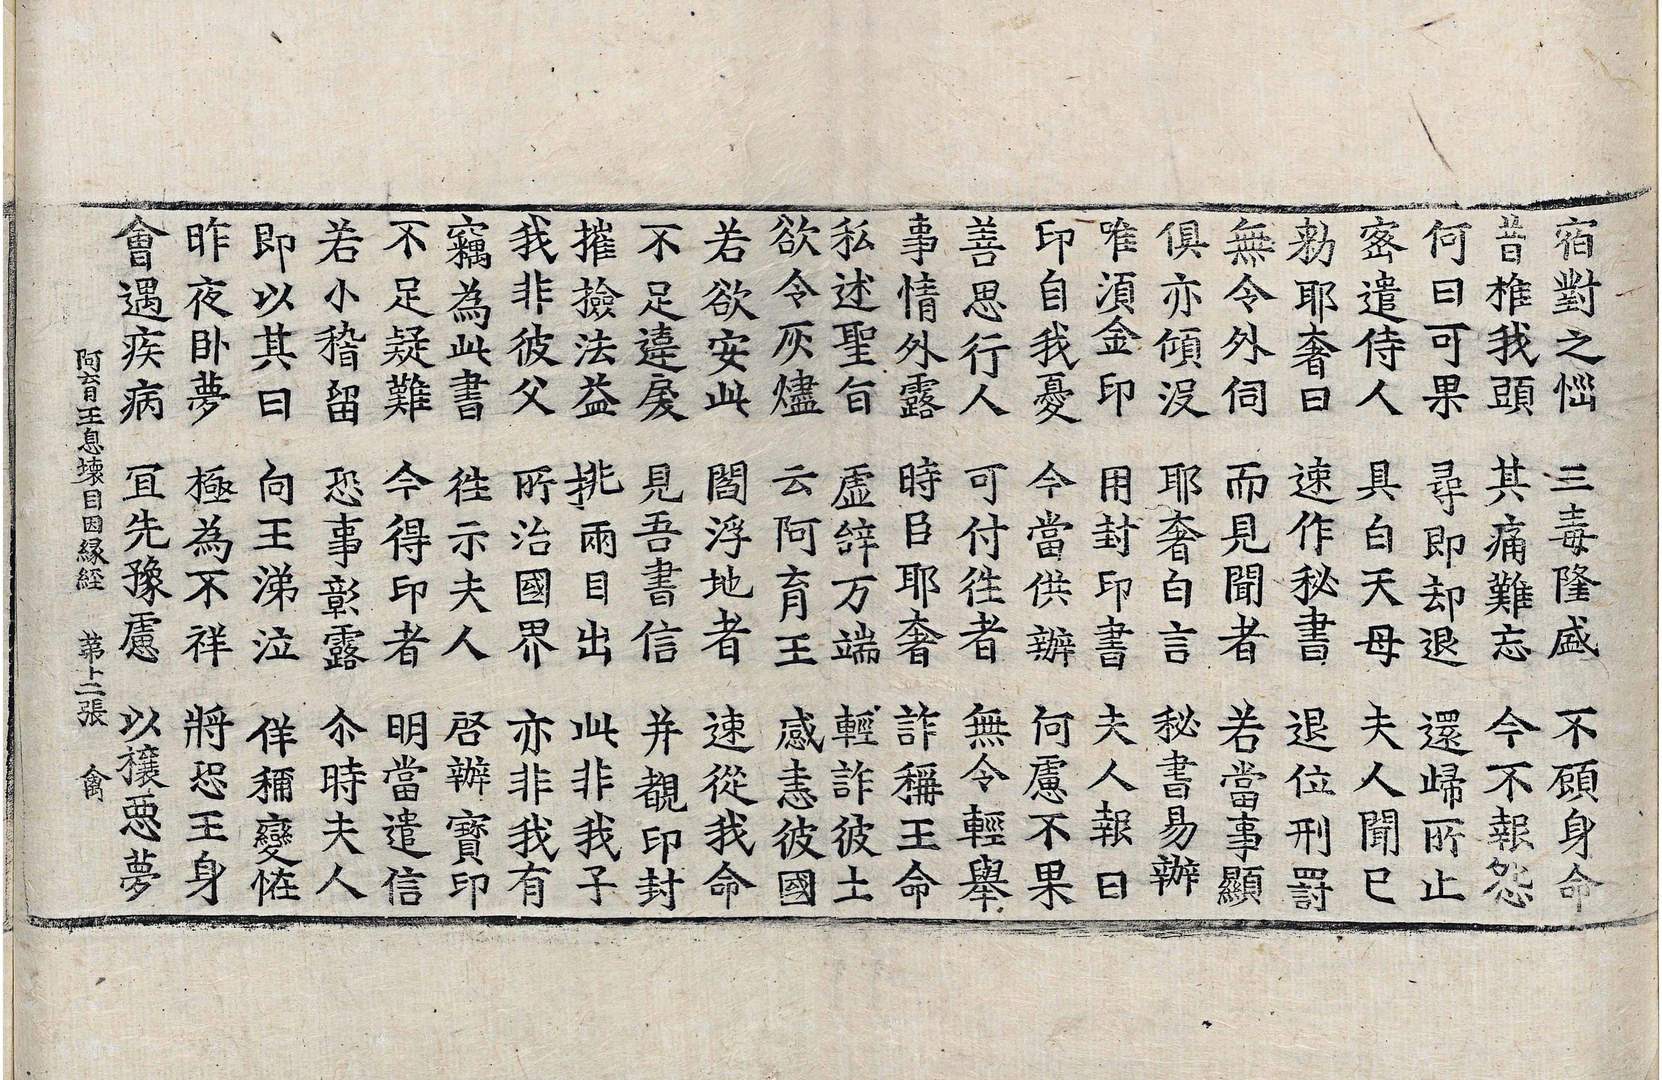 宿對之惱 三毒隆盛 不顧身命
昔椎我頭 其痛難忘 今不報怨
何日可果 尋即却退 還歸所止
密遣侍人 具白天母 夫人聞已
勑耶奢曰 速作秘書 退位刑罰
無令外伺 而見聞者 若當事顯
俱亦傾没 耶奢白言 秘書易辦
唯湏金印 用封印書 夫人報曰
印自我憂 今當供辦 何慮不果
善思行人 可付徃者 無令輕舉
事情外露 時臣耶奢 詐稱王命
私述聖旨 虛辭万端 輕詐彼土
欲令灰燼 云阿育王 感恚彼國
若欲安此 閻浮地者 速從我命
不足違戾 見吾書信 并覩印封
摧撿法益 挑兩目出 此非我子
我非彼父 所治國界 亦非我有
竊為此書 徃示夫人 啓辦寶印
不足疑難 今得印者 明當遣信
若小稽留 恐事彰露 尒時夫人
即以其日 向王涕泣 佯稱變恠
昨夜卧夢 極為不祥 將恐王身
會遇疾病 宜先豫慮 以禳惡夢
阿育王息壞目因緣經 第十二張 禽